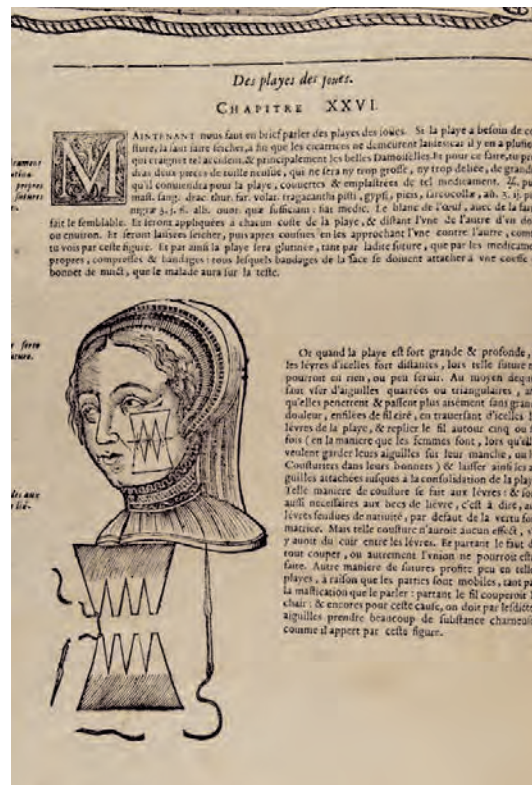 Des playes des joues.
CHAPITRE XXVI.
MAINTENANT nous faut en brief parler des playes des ioues. Si la playe a besoin de cou
sture, la faut faire seiche, a fin que les cicatrices ne demeurent laides: car il y en a plusieu
qui craignent tel accident, & principalement les belles Damoiselles. Et pour ce faire, tu pren
dras deux pieces de toille neufue, qui ne sera ny trop grosse, ny trop deliée, de grandeu
qu'il conuiendra pour la playe, couuertes & emplastrées de tel medicament. ℞. pul
mast. sang. drac. thur. far. volat. tragacanthi pisti, gypsi, picis, sarcocollæ, añ. ʒ. ij. pic
nigræ ʒ. ß. alb. ouor. quæ sufficiant: fiat medic. Le blanc de l'œuf, auec de la farin
fait le semblable. Et seront appliquées à chacun costé de la playe, & distant l'vne de l'autre d'vn doig
ou enuiron. Et seront laissées seicher, puis apres cousues en les approchant l'vne contre l'autre, comm
tu vois par ceste figure. Et par ainsi la playe sera glutinée, tant par ladite suture, que par les medicamen
propres, compresses & bandages: tous lesquels bandages de la face se doiuent attacher à vne coeffe o
bonnet de nuict, que le malade aura sur la teste.
rament
ation
propres
sutures
ferte
uture.
des aux
liè-
Or quand la playe est fort grande & profonde, 
les lèvres d'icelles fort distantes, lors telle suture n
pourroit en rien, ou peu seruir. Au moyen dequo
faut vser d'aiguilles quarrées ou triangulaires, a
qu'elles penetrent & passent plus aisément sans grand
douleur, enfilées de fil ciré, en trauersant d'icelles l
lèvres de la playe, & replier le fil autour cinq ou s
fois (en la maniere que les femmes font, lors qu'ell
veulent garder leurs aiguilles sur leur manche, ou l
Cousturiers dans leurs bonnets) & laisser ainsi les a
guilles attachées iusques à la consolidation de la play
Telle maniere de cousture se fait aux lèvres: & l
aussi necessaires aux becs de lièvre, c'est à dire, au
lèvres fendues de natiuité, par defaut de la vertu for
matrice. Mais telle cousture n'auroit aucun effect, s
y auoit du cuir entre les lèvres. Et partant le faut d
tout couper, ou autrement l'vnion ne pourroit est
faite. Autre maniere de sutures profite peu en telle
playes, à raison que les parties sont mobiles, tant pa
la mastication que le parler: partant le fil couperoit l
chair: & encores pour ceste cause, on doit par lesdicte
aiguilles prendre beaucoup de substance charneus
comme il appert par ceste figure.